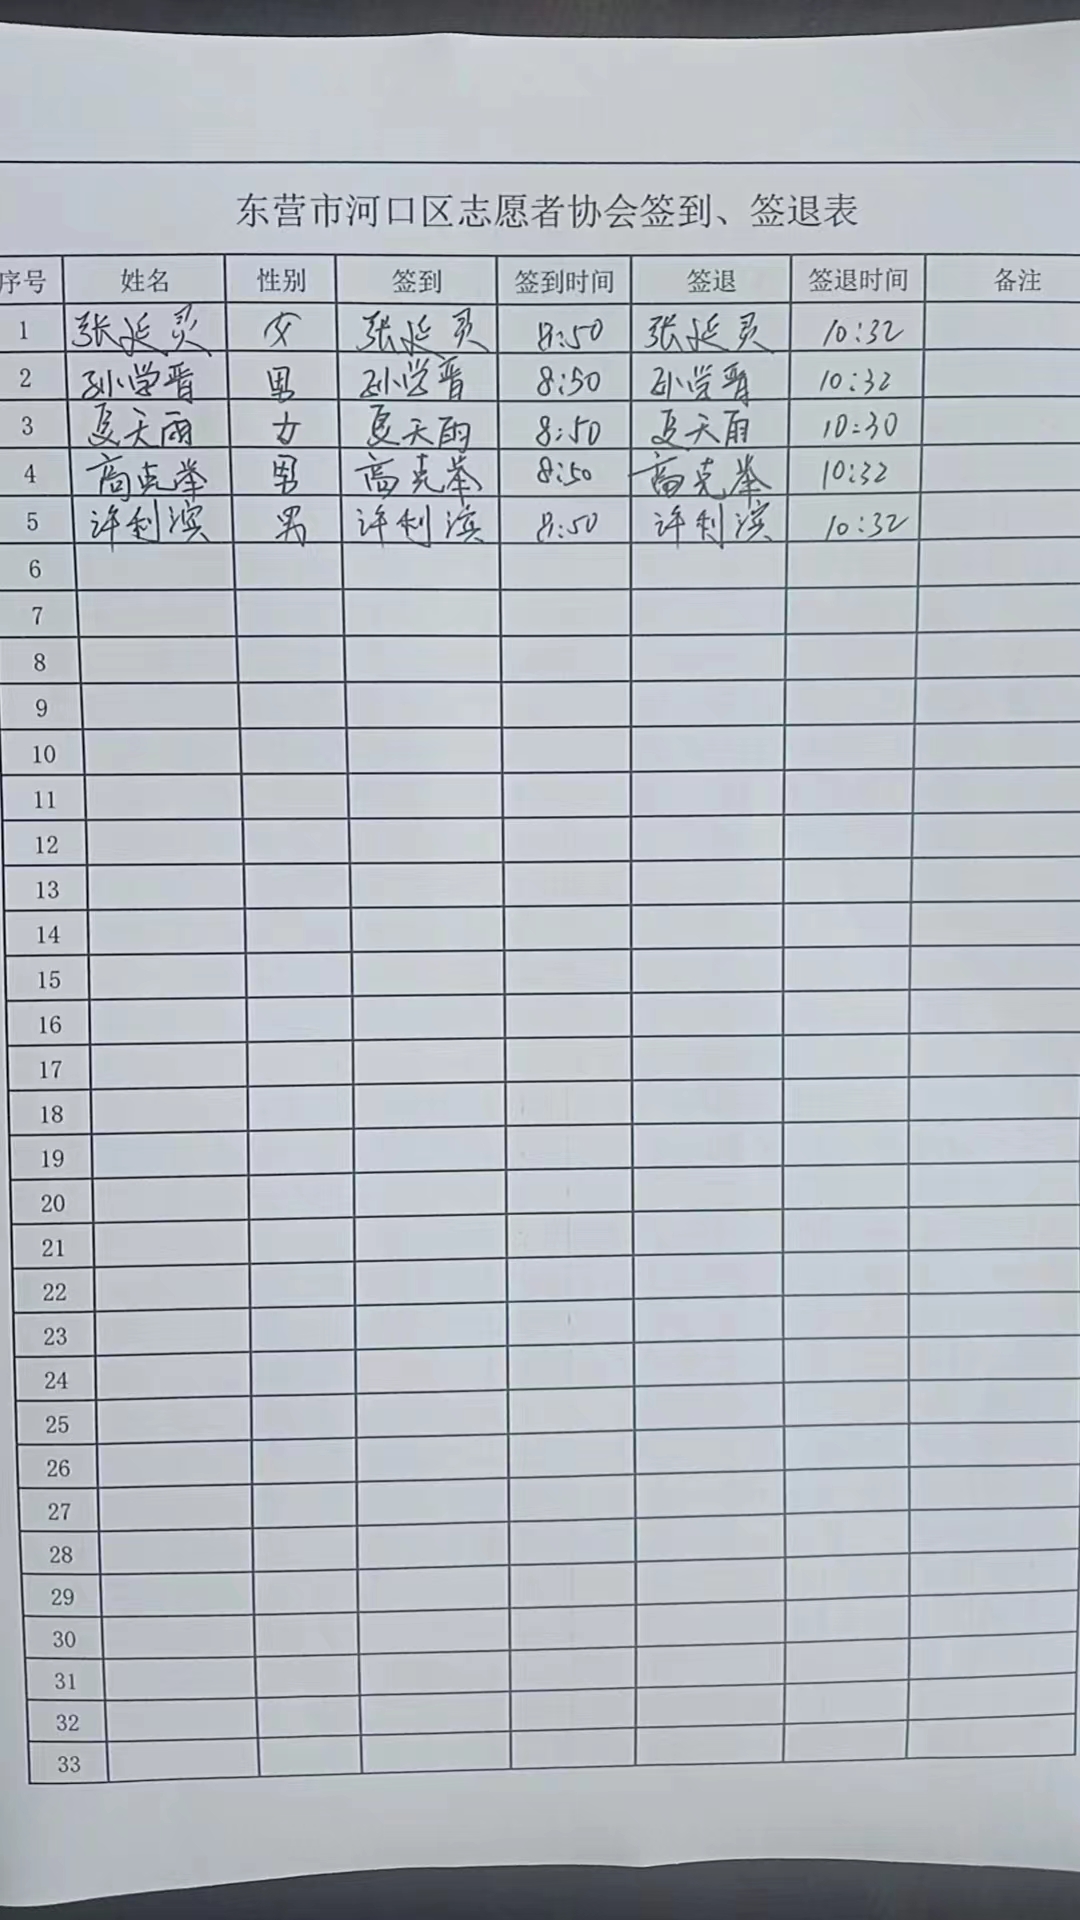 东营市河口区志愿者协会签到、签退表
序号 姓名 性别 签到 签到时间 签退 签退时间 备注
1 张延灵 女 张延灵 8:50 张延灵 10:32
2 孙学晋 男 孙学晋 8:50 孙学晋 10:32
3 夏天雨 女 夏天雨 8:50 夏天雨 10:30
4 高克举 男 高克举 8:50 高克举 10:32
5 许利滨 男 许利滨 8:50 许利滨 10:32
6
7
8
9
10
11
12
13
14
15
16
17
18
19
20
21
22
23
24
25
26
27
28
29
30
31
32
33